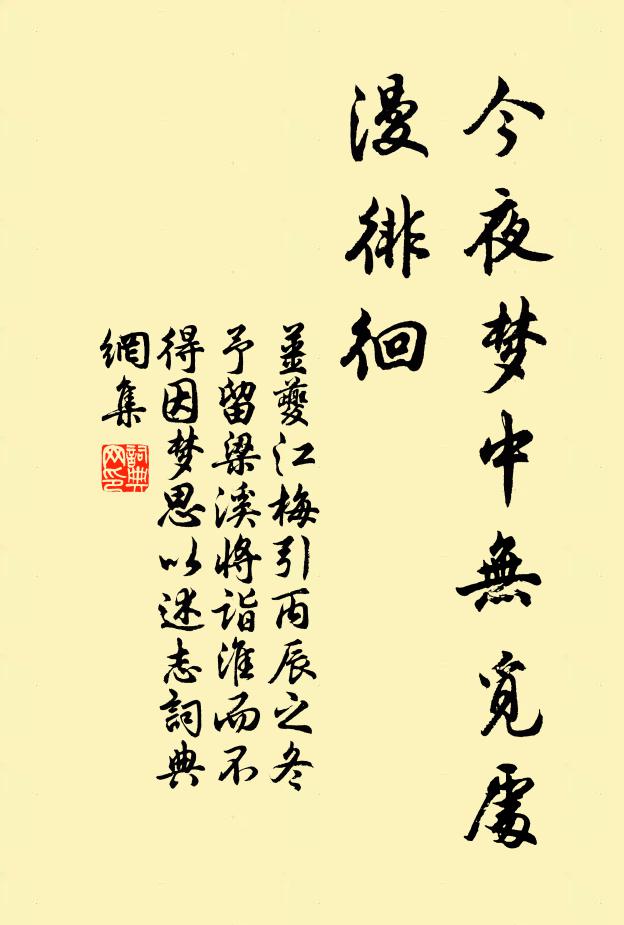 今夜梦中無覓處
漫徘徊
姜夔江梅引丙辰之冬
予留梁溪將詣淮而不
得因梦思以述志詞典
網集
詞典
网印